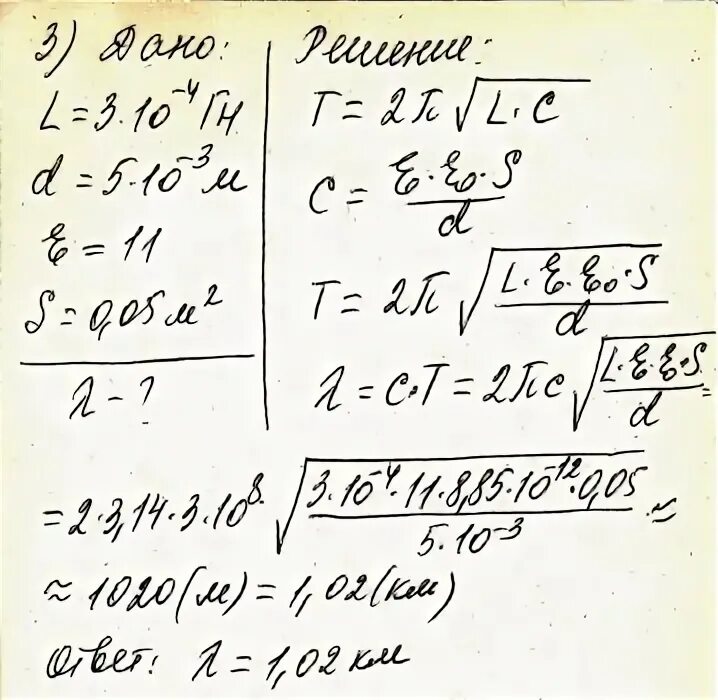 3) Дано:
L = 3·10⁻⁴ Гн
d = 5·10⁻³ м
ε = 11
S = 0,05 м²
λ - ?
Решение:
T = 2π√(L·C)
C = (ε·ε₀·S)/d
T = 2π√((L·ε·ε₀·S)/d)
λ = c·T = 2πc√((L·ε·ε₀·S)/d) =
= 2·3,14·3·10⁸·√((3·10⁻⁴·11·8,85·10⁻¹²·0,05)/(5·10⁻³)) ≈
≈ 1020 (м) = 1,02 (км)
Ответ: λ = 1,02 км